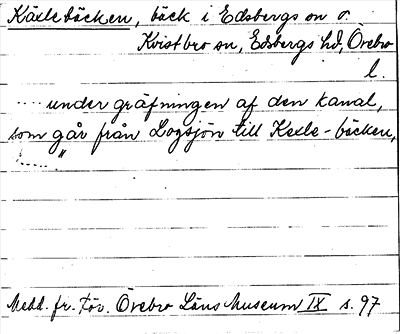 Käxlebäcken, bäck i Edsbergs sn o.
Kvistbro sn, Edsbergs hd, Örebro
l.
.... under gräfningen af den kanal,
som går från Logsjön till Kexle-bäcken,
....."
Medd. fr. För. Örebro Läns Museum IX s. 97